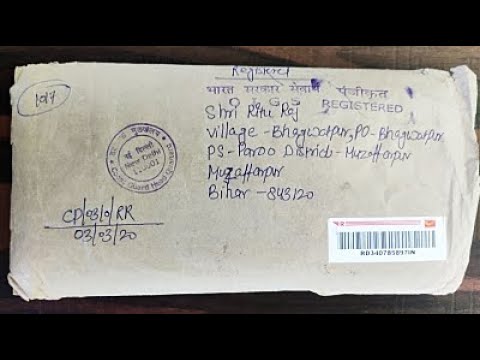 Registered
भारत सरकार सेवार्थ पंजीकृत
REGISTERED
Shri Ritu Raj
Village-Bhagwatpur, PO-Bhagwatpur
PS-Paroo District-Muzaffarpur
Muzaffarpur
Bihar-843120
नई दिल्ली
New Delhi
CP/03/0/RR
03/03/20